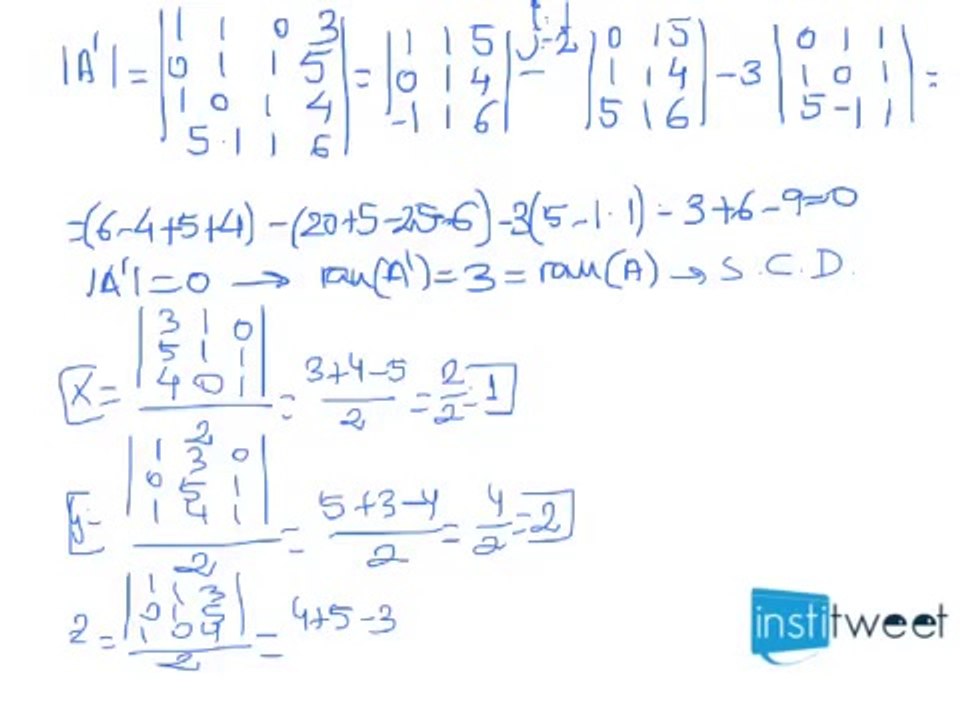 |A'| = |1 1 0 3| = |1 1 5| − |0 1 5| − 3 |0 1 1| =
|0 1 1 5| |0 1 4| |1 1 4| |1 0 1|
|1 0 1 4| |-1 1 6| |5 1 6| |5 -1 1|
|5 -1 1 6|
=(6-4+5+4) - (20+5-25-6) -3(5-1-1) = 3+6-9=0
|A'|=0 → ran(A')=3=ran(A) → S.C.D.
|3 1 0|
|5 1 1|
x = |4 0 1| / 2 = 3+4-5 / 2 = 2/2 = 1
|1 3 0|
|0 5 1|
y = |1 4 1| / 2 = 5+3-4 / 2 = 4/2 = 2
|1 1 3|
|0 1 5|
z = |1 0 4| / 2 = 4+5-3
institweet